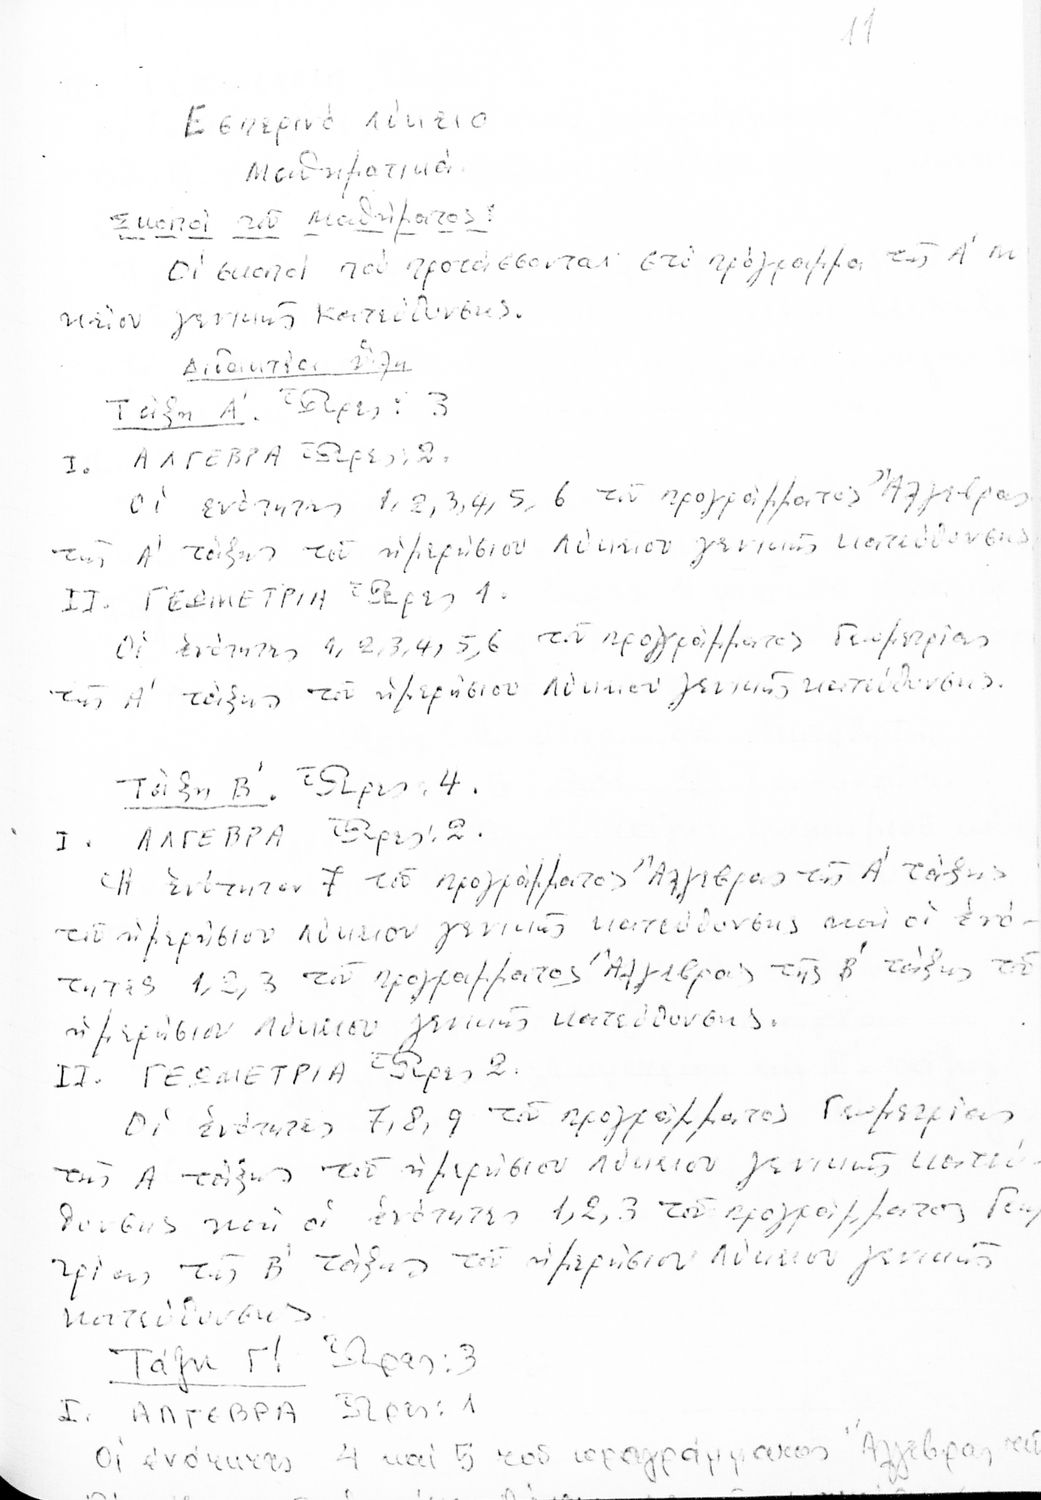 11
Ἑσπερινό Λύκειο
Μαθηματικά.
Σκοποί τοῦ Μαθήματος:
Οἱ σκοποί πού προτάσσονται στό πρόγραμμα τῆς Α' Λυ
κείου γενικῆς κατεύθυνσης.
Διδακτέα ὕλη
Τάξη Α'. Ὧρες: 3
I. ΑΛΓΕΒΡΑ Ὧρες: 2.
Οἱ ἑνότητες 1, 2, 3, 4, 5, 6 τοῦ προγράμματος Ἄλγεβρας
τῆς Α' τάξης τοῦ ἡμερήσιου Λύκειου γενικῆς κατεύθυνσης
II. ΓΕΩΜΕΤΡΙΑ Ὧρες 1.
Οἱ ἑνότητες 1, 2, 3, 4, 5, 6 τοῦ προγράμματος Γεωμετρίας
τῆς Α' τάξης τοῦ ἡμερήσιου Λύκειου γενικῆς κατεύθυνσης.
Τάξη Β'. Ὧρες: 4.
I. ΑΛΓΕΒΡΑ Ὧρες: 2.
Ἡ 7 τοῦ προγράμματος Ἄλγεβρας τῆς Α' τάξης
τοῦ ἡμερήσιου Λύκειου γενικῆς κατεύθυνσης καί οἱ ἑνό-
τητες 1, 2, 3 τοῦ προγράμματος Ἄλγεβρας τῆς Β' τάξης τοῦ
ἡμερήσιου Λύκειου γενικῆς κατεύθυνσης.
II. ΓΕΩΜΕΤΡΙΑ Ὧρες 2.
Οἱ ἑνότητες 7, 8, 9 τοῦ προγράμματος Γεωμετρίας
τῆς Α τάξης τοῦ ἡμερήσιου Λύκειου γενικῆς κατεύ-
θυνσης καί οἱ ἑνότητες 1, 2, 3 τοῦ προγράμματος Γεωμ
τρίας τῆς Β' τάξης τοῦ ἡμερήσιου Λύκειου γενικῆς
κατεύθυνσης
Τάξη Γ' Ὧρες: 3
I. ΑΛΓΕΒΡΑ Ὧρες: 1
Οἱ ἑνότητες 4 καί 5 τοῦ προγράμματος Ἄλγεβρας τοῦ